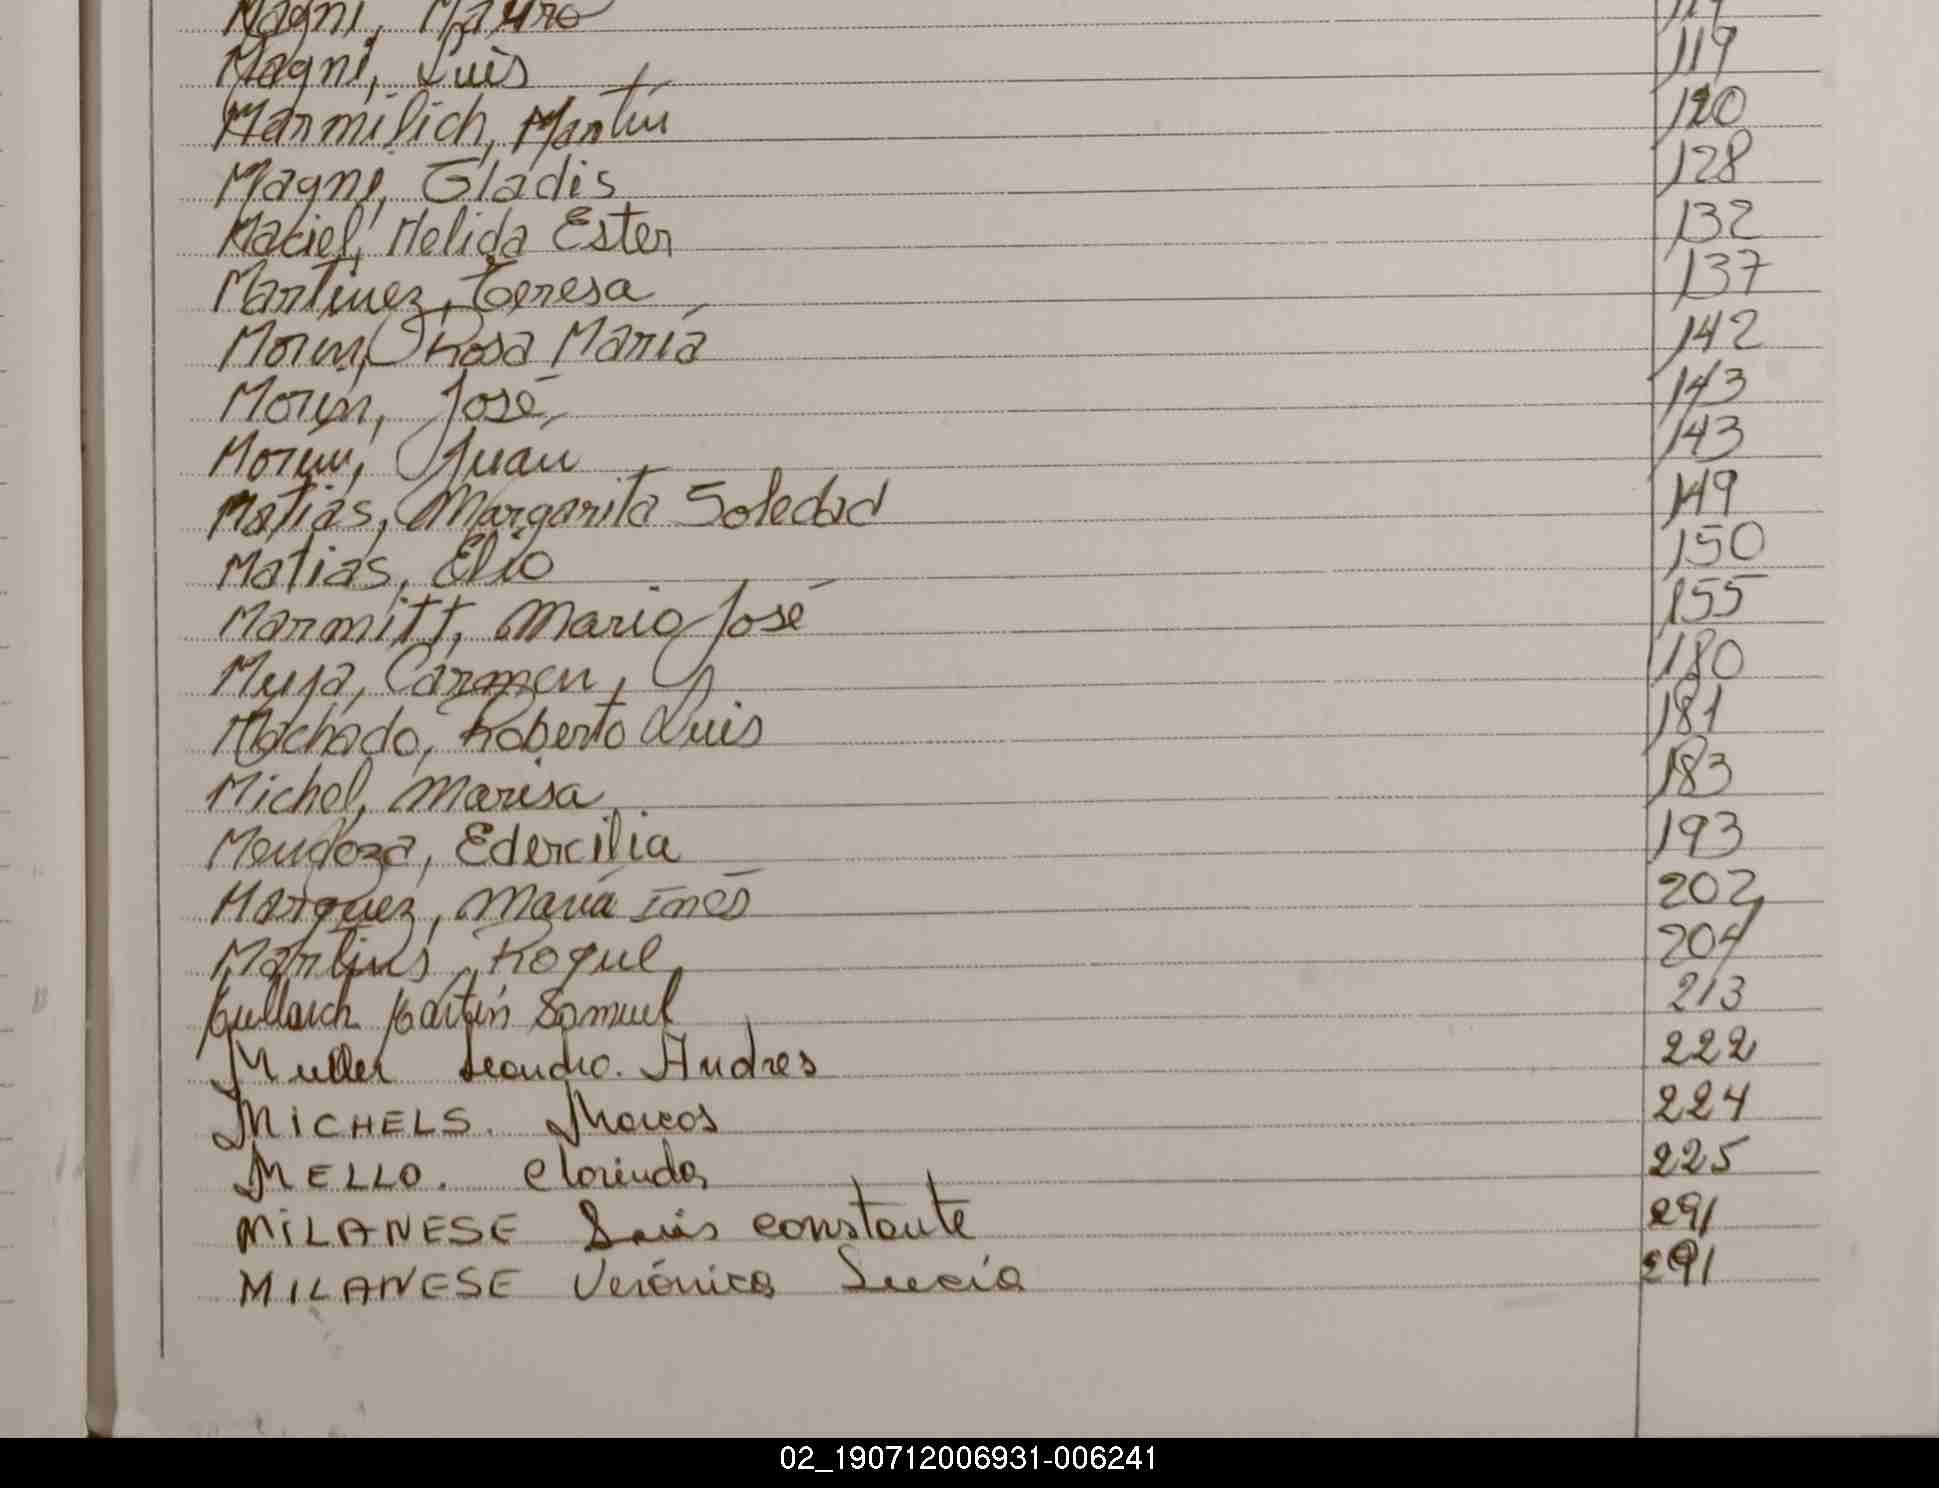 Magni, Mauro 119
Magni, Luis 119
Marmilich, Martín 120
Magni, Gladis 128
Maciel, Melida Ester 132
Martinez, Teresa 137
Morin, Rosa María 142
Morin, José 143
Morin, Juan 143
Matias, Margarita Soledad 149
Matias, Elio 150
Marmitt, Mario José 155
Muya, Carmen 180
Machado, Roberto Luis 181
Michel, Marisa 183
Mendoza, Edercilia 193
Marquez, María Inés 202
Martins, Roque 204
Martín Samuel 213
Muller Leandro. Andres 222
MICHELS. Marcos 224
MELLO. Clorinda 225
MILANESE Luis constante 291
MILANESE Verónica Lucía 291
02_190712006931-006241